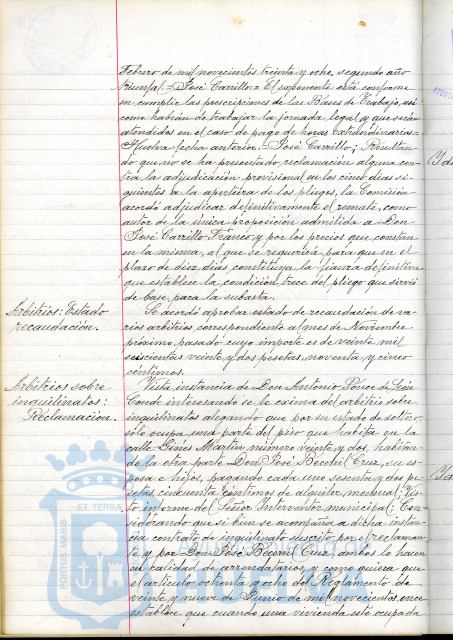 Febrero de mil novecientos treinta y ocho, segundo año
triunfal = José Carrillo = El exponente está conforme
en cumplir las prescripciones de las Bases de Trabajo, así
como habrán de trabajar la jornada legal y que serán
atendidos en el caso de pago de horas extraordinarias.-
Huelva fecha anterior.- José Carrillo; Resultan-
do que no se ha presentado reclamación alguna con-
tra la adjudicación provisional en los cinco días si-
guientes a la apertura de los pliegos, la Comisión
acordó adjudicar definitivamente el remate, como
autor de la única proposición admitida a Don
José Carrillo Franco y por los precios que constan
en la misma, al que se requerirá para que en el
plazo de diez días constituya la fianza definitiva
que establece la condición trece del pliego que sirvió
de base para la subasta.
Arbitrios: Estado
recaudación.
Se acordó aprobar estado de recaudación de va-
rios arbitrios correspondiente al mes de Noviembre
próximo pasado cuyo importe es de veinte mil
seiscientas veinte y dos pesetas, noventa y cinco
céntimos.
Arbitrios sobre
inquilinatos:
Reclamación.
Vista instancia de Don Antonio Ponce de León
Conde interesando se le exima del arbitrio sobre
inquilinatos alegando que por su estado de soltero,
sólo ocupa una parte del piso que habita en la
calle Ginés Martín número veinte y dos, habitan-
do la otra parte Don José Becerril Cruz, su es-
posa e hijos, pagando cada uno sesenta y dos pe-
setas cincuenta céntimos de alquiler mensual; Vis-
to informe del Señor Interventor municipal; Con-
siderando que si bien se acompaña a dicha instan-
cia contrato de inquilinato suscrito por el reclaman-
te y por Don José Becerril Cruz, ambos lo hacen
en calidad de arrendatarios, y como quiera que
el artículo ochenta y ocho del Reglamento de
veinte y nueve de Junio de mil novecientos once
establece que cuando una vivienda esté ocupada
PORTUS MARIS
ET TERRA